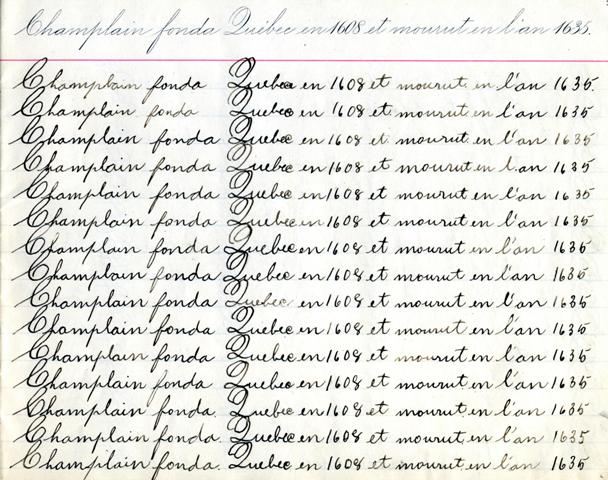 Champlain fonda Québec en 1608 et mourut en l'an 1635.
Champlain fonda Quebec en 1608 et mourut en l'an 1635.
Champlain fonda Quebec en 1608 et mourut en l'an 1635.
Champlain fonda Quebec en 1608 et mourut en l'an 1635
Champlain fonda Quebec en 1608 et mourut en l.an 1635
Champlain fonda Quebec en 1608 et mourut en l'an 1635
Champlain fonda Quebec en 1608 et mourut en l'an 1635
Champlain fonda Quebec en 1608 et mourut en l'an 1635
Champlain fonda Quebec en 1608 et mourut en l'an 1635
Champlain fonda Quebec en 1608 et mourut en l'an 1635
Champlain fonda Quebec en 1608 et mourut en l'an 1635
Champlain fonda Quebec en 1608 et mourut en l'an 1635
Champlain fonda Quebec en 1608 et mourut en l'an 1635
Champlain fonda. Quebec en 1608 et mourut en l'an 1635
Champlain fonda. Quebec en 1608 et mourut en l'an 1635
Champlain fonda. Quebec en 1608 et mourut en l'an 1635